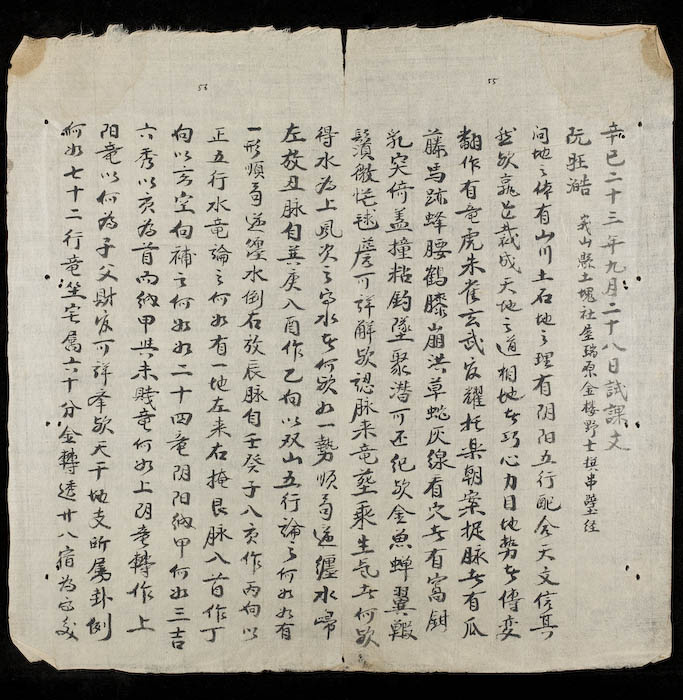 55
辛巳二十三年九月二十八日試課文
阮旺澔 峩山縣土塊社 瑞原金樓野士撰串 经
问地之体有山川土石地之理有阴阳五行配合天文信其
然欤孰 裁成天地之道相地者巧心力目地势者傳变
翻作有竜虎朱雀玄武官耀托樂朝案捉脉者有瓜
藤馬跡蜂腰鶴膝崩洪草蛇灰線有穴者有窩鉗
乳突倚盖撞粘 墜聚潜可还纪欤金魚蝉翼蝦
鬚微茫毬簷可詳解欤認脉来竜塟乘生气者何欤
得水為上風次之 水者何欤如一勢順局逆纏水歸
左放丑脉自巽庚入酉作乙向以双山五行論之何如如有
一形順局逆纏水倒右放辰脉自壬癸子入亥作丙向以
56
正五行水竜論之何如有一地左来右掩艮脉入首作丁
向以玄空向補之何如如二十四竜阴阳纳甲何如三吉
六秀以亥為首而纳甲共未賤竜何如上阴竜轉作上
阳竜以何為子父財官可詳 欤天干地支所属卦例
何如七十二行竜坐宅属六十分金轉透廿八宿為